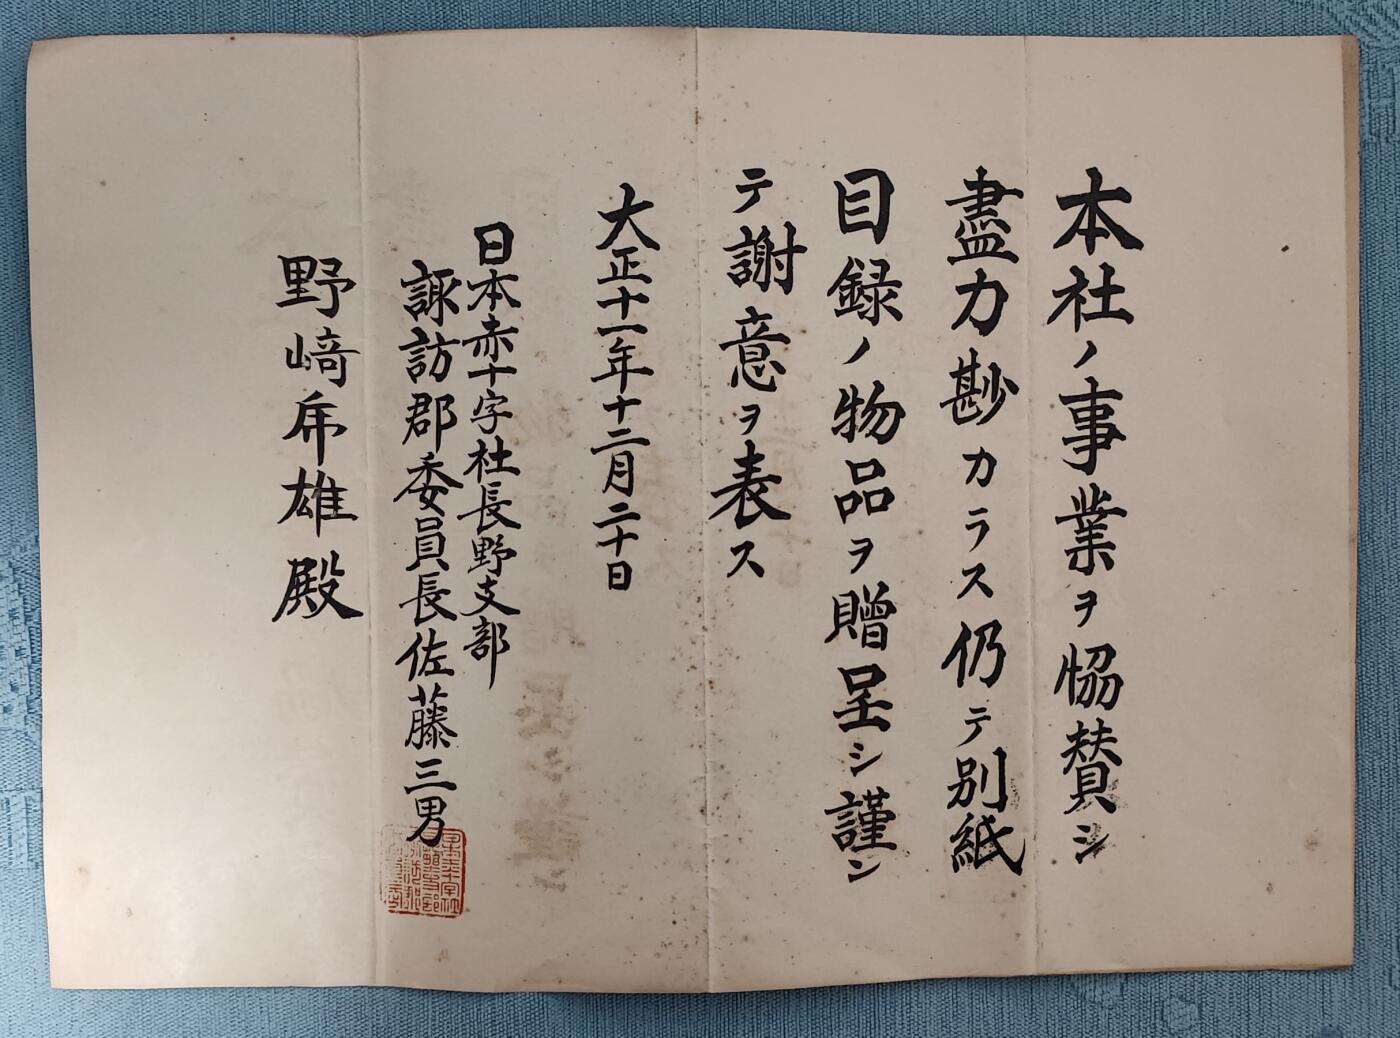 本社ノ事業ヲ恊賛シ
盡力尠カラス仍テ別紙
目録ノ物品ヲ贈呈シ謹ン
テ謝意ヲ表ス
大正十一年十二月二十日
日本赤十字社長野支部
諏訪郡委員長佐藤三男
野﨑雄殿